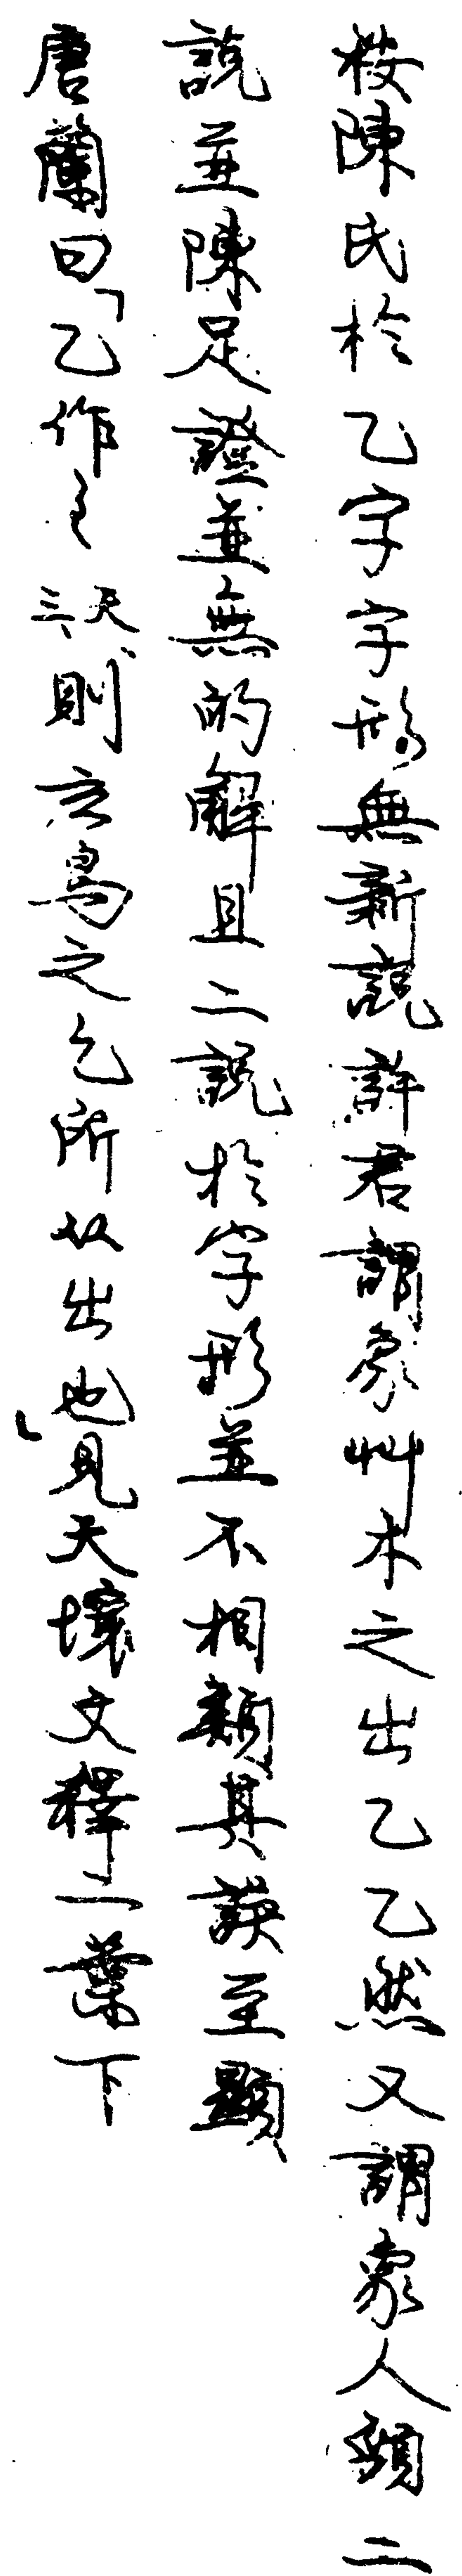 桉陳氏於乙字字形無新說許君謂象艸木之出乙乙然又謂象人頸二
說並陳足證並無的解且二說於字形並不相類其誤至顯
唐蘭曰「乙作 則玄鳥之乞所以出也」見天壤文釋二葉下